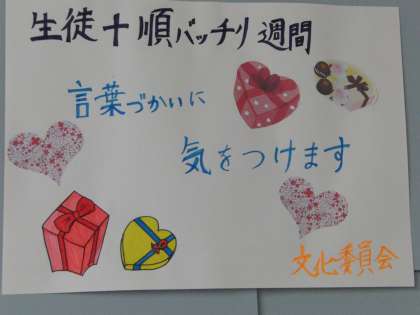 生徒十順バッチリ週間
言葉づかいに
気をつけます
文化委員会